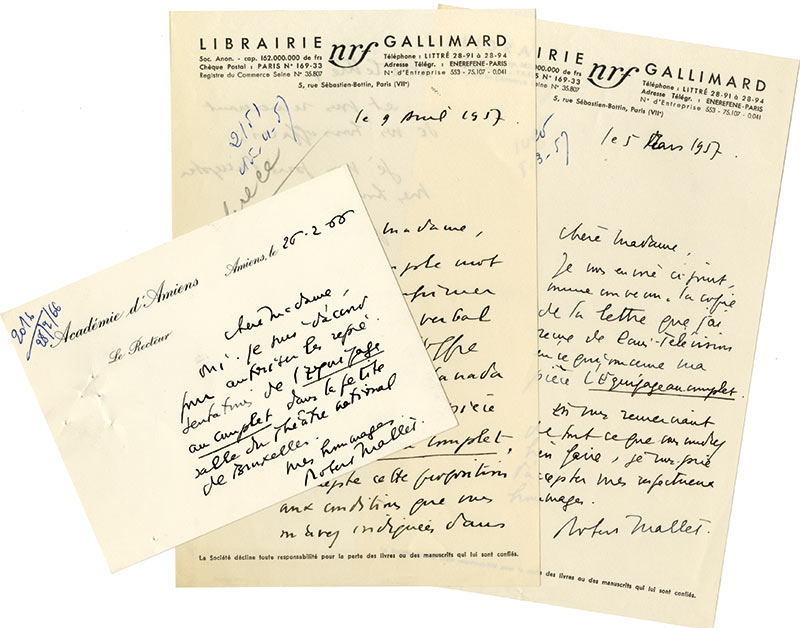 LIBRAIRIE nrf GALLIMARD
Soc. Anon. - cap. 162.000.000 de frs
Chèque Postal : PARIS N° 169-33
Registre du Commerce Seine N° 35.807
Téléphone : LITTRÉ 28-91 à 28-94
Adresse Télégr. : ENEREFENE-PARIS
N° d'Entreprise 553 - 75.107 - 0.041
5, rue Sébastien-Bottin, Paris (VIIe)
le 9 Avril 1957.
2151
madame,
mot
verbal
offre
Canada
pièce
complet,
cette proposition
aux conditions que vous
m'avez indiquées dans
La Société décline toute responsabilité pour la perte des livres ou des manuscrits qui lui sont confiés.
IRIE nrf GALLIMARD
de frs
N° 169-33
N° 35.807
Téléphone : LITTRÉ 28-91 à 28-94
Adresse Télégr. : ENEREFENE-PARIS
N° d'Entreprise 553 - 75.107 - 0.041
5, rue Sébastien-Bottin, Paris (VIIe)
le 5 Mars 1957.
chère Madame,
Je vous envoie ci-joint,
comme convenu, la copie
de la lettre que j'ai
reçue de
ce qui concerne ma
pièce L'Equipage au complet.
En vous remerciant
de tout ce que vous voulez
bien faire, je vous prie
accepter mes respectueux
hommages.
Robert Mallet.
des livres ou des manuscrits qui lui sont confiés.
2016
28/2/66
Académie d'Amiens
Le Recteur
Amiens, le 26-2-66
chère madame,
oui. Je suis d'accord
pour autoriser les repré-
sentations de l'Equipage
au complet dans la petite
salle du Théâtre national
de Bruxelles.
mes hommages
Robert Mallet.